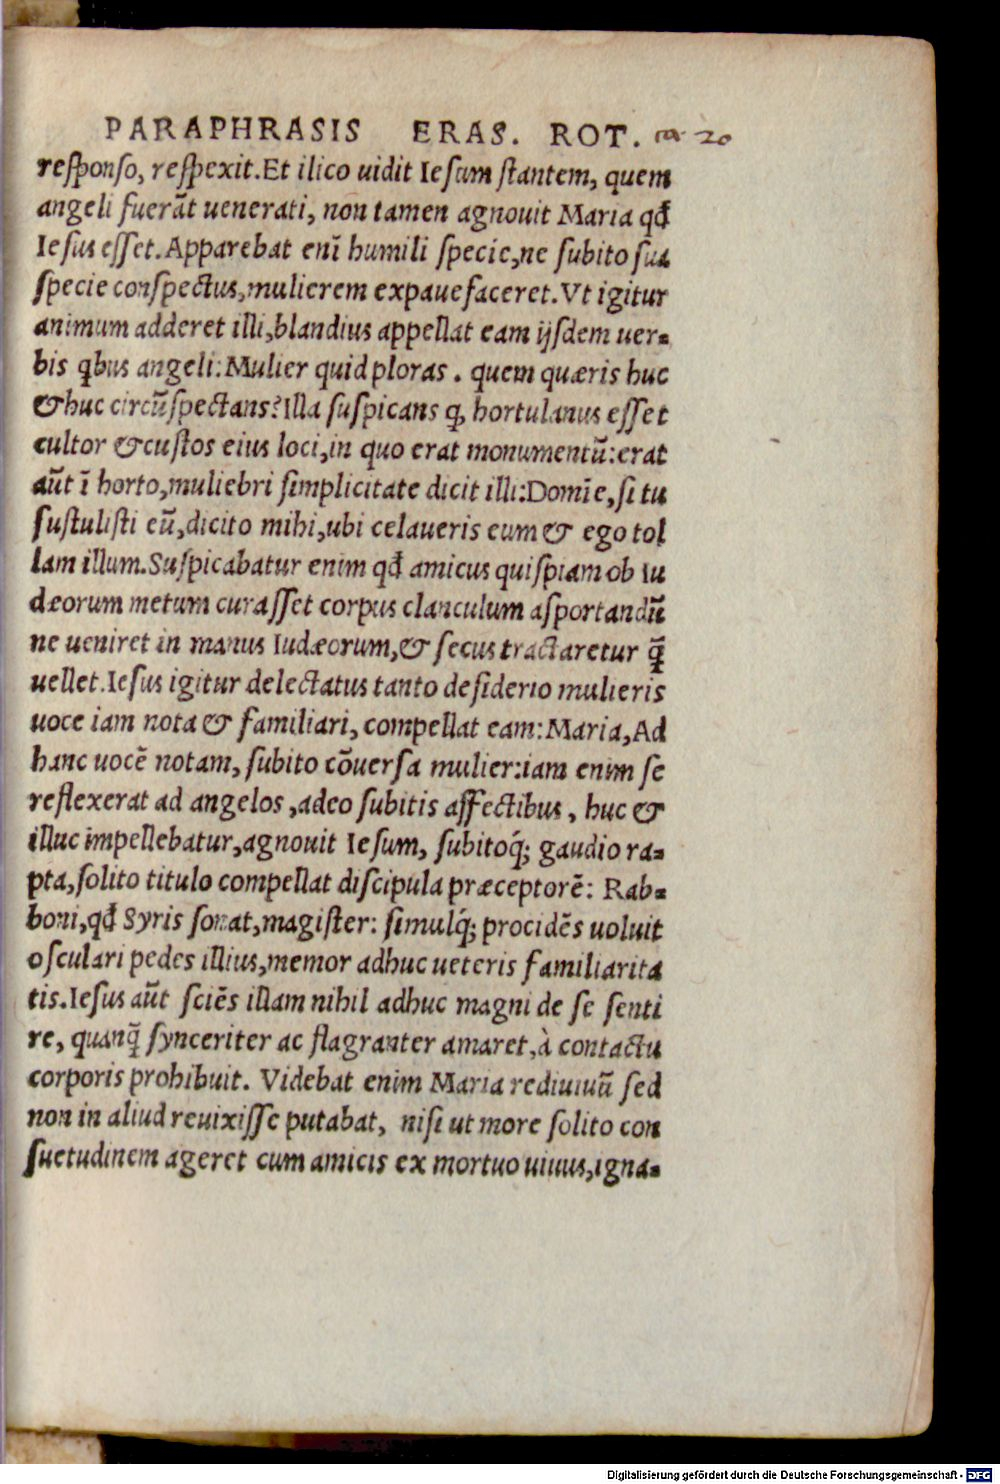 PARAPHRASIS ERAS. ROT. ca. 20
responso, respexit. Et ilico uidit Iesum stantem, quem
angeli fuerãt uenerati, non tamen agnouit Maria qđ
Iesus esset. Apparebat enĩ humili specie, ne subito sua
specie conspectus, mulierem expauefaceret. Vt igitur
animum adderet illi, blandius appellat eam ijsdem uer=
bis qbus angeli: Mulier quid ploras. quem quæris huc
& huc circũspectans? Illa suspicans ꝙ hortulanus esset
cultor & custos eius loci, in quo erat monumentũ: erat
aũt ĩ horto, muliebri simplicitate dicit illi: Domĩe, si tu
sustulisti eũ, dicito mihi, ubi celaueris eum & ego tol
lam illum. Suspicabatur enim qđ amicus quispiam ob Iu
dæorum metum curasset corpus clanculum asportandũ
ne ueniret in manus Iudæorum, & secus tractaretur q̃
uellet. Iesus igitur delectatus tanto desiderio mulieris
uoce iam nota & familiari, compellat eam: Maria, Ad
hanc uocẽ notam, subito cõuersa mulier: iam enim se
reflexerat ad angelos, adeo subitis affectibus, huc &
illuc impellebatur, agnouit Iesum, subitoq́; gaudio ra=
pta, solito titulo compellat discipula præceptorẽ: Rab=
boni, qđ Syris sonat, magister: simulq́; procidẽs uoluit
osculari pedes illius, memor adhuc ueteris familiarita
tis. Iesus aũt sciẽs illam nihil adhuc magni de se senti
re, quanq̃ synceriter ac flagranter amaret, à contactu
corporis prohibuit. Videbat enim Maria rediuiuũ sed
non in aliud reuixisse putabat, nisi ut more solito con
suetudinem ageret cum amicis ex mortuo uiuus, igna=
Digitalisierung gefördert durch die Deutsche Forschungsgemeinschaft - DFG